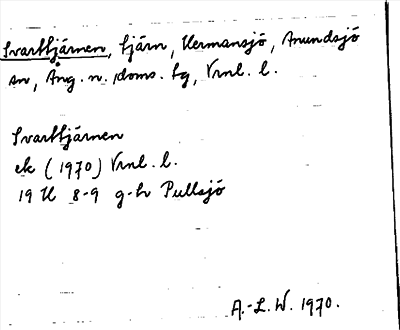 Svarttjärnen, tjärn, Hermansjö, Anundsjö
sn, Ång. n. doms. tg, Vrnl. l.
Svarttjärnen
ek (1970) Vrnl. l.
19 H 8-9 g-h Pullsjö
A.-L.W. 1970.